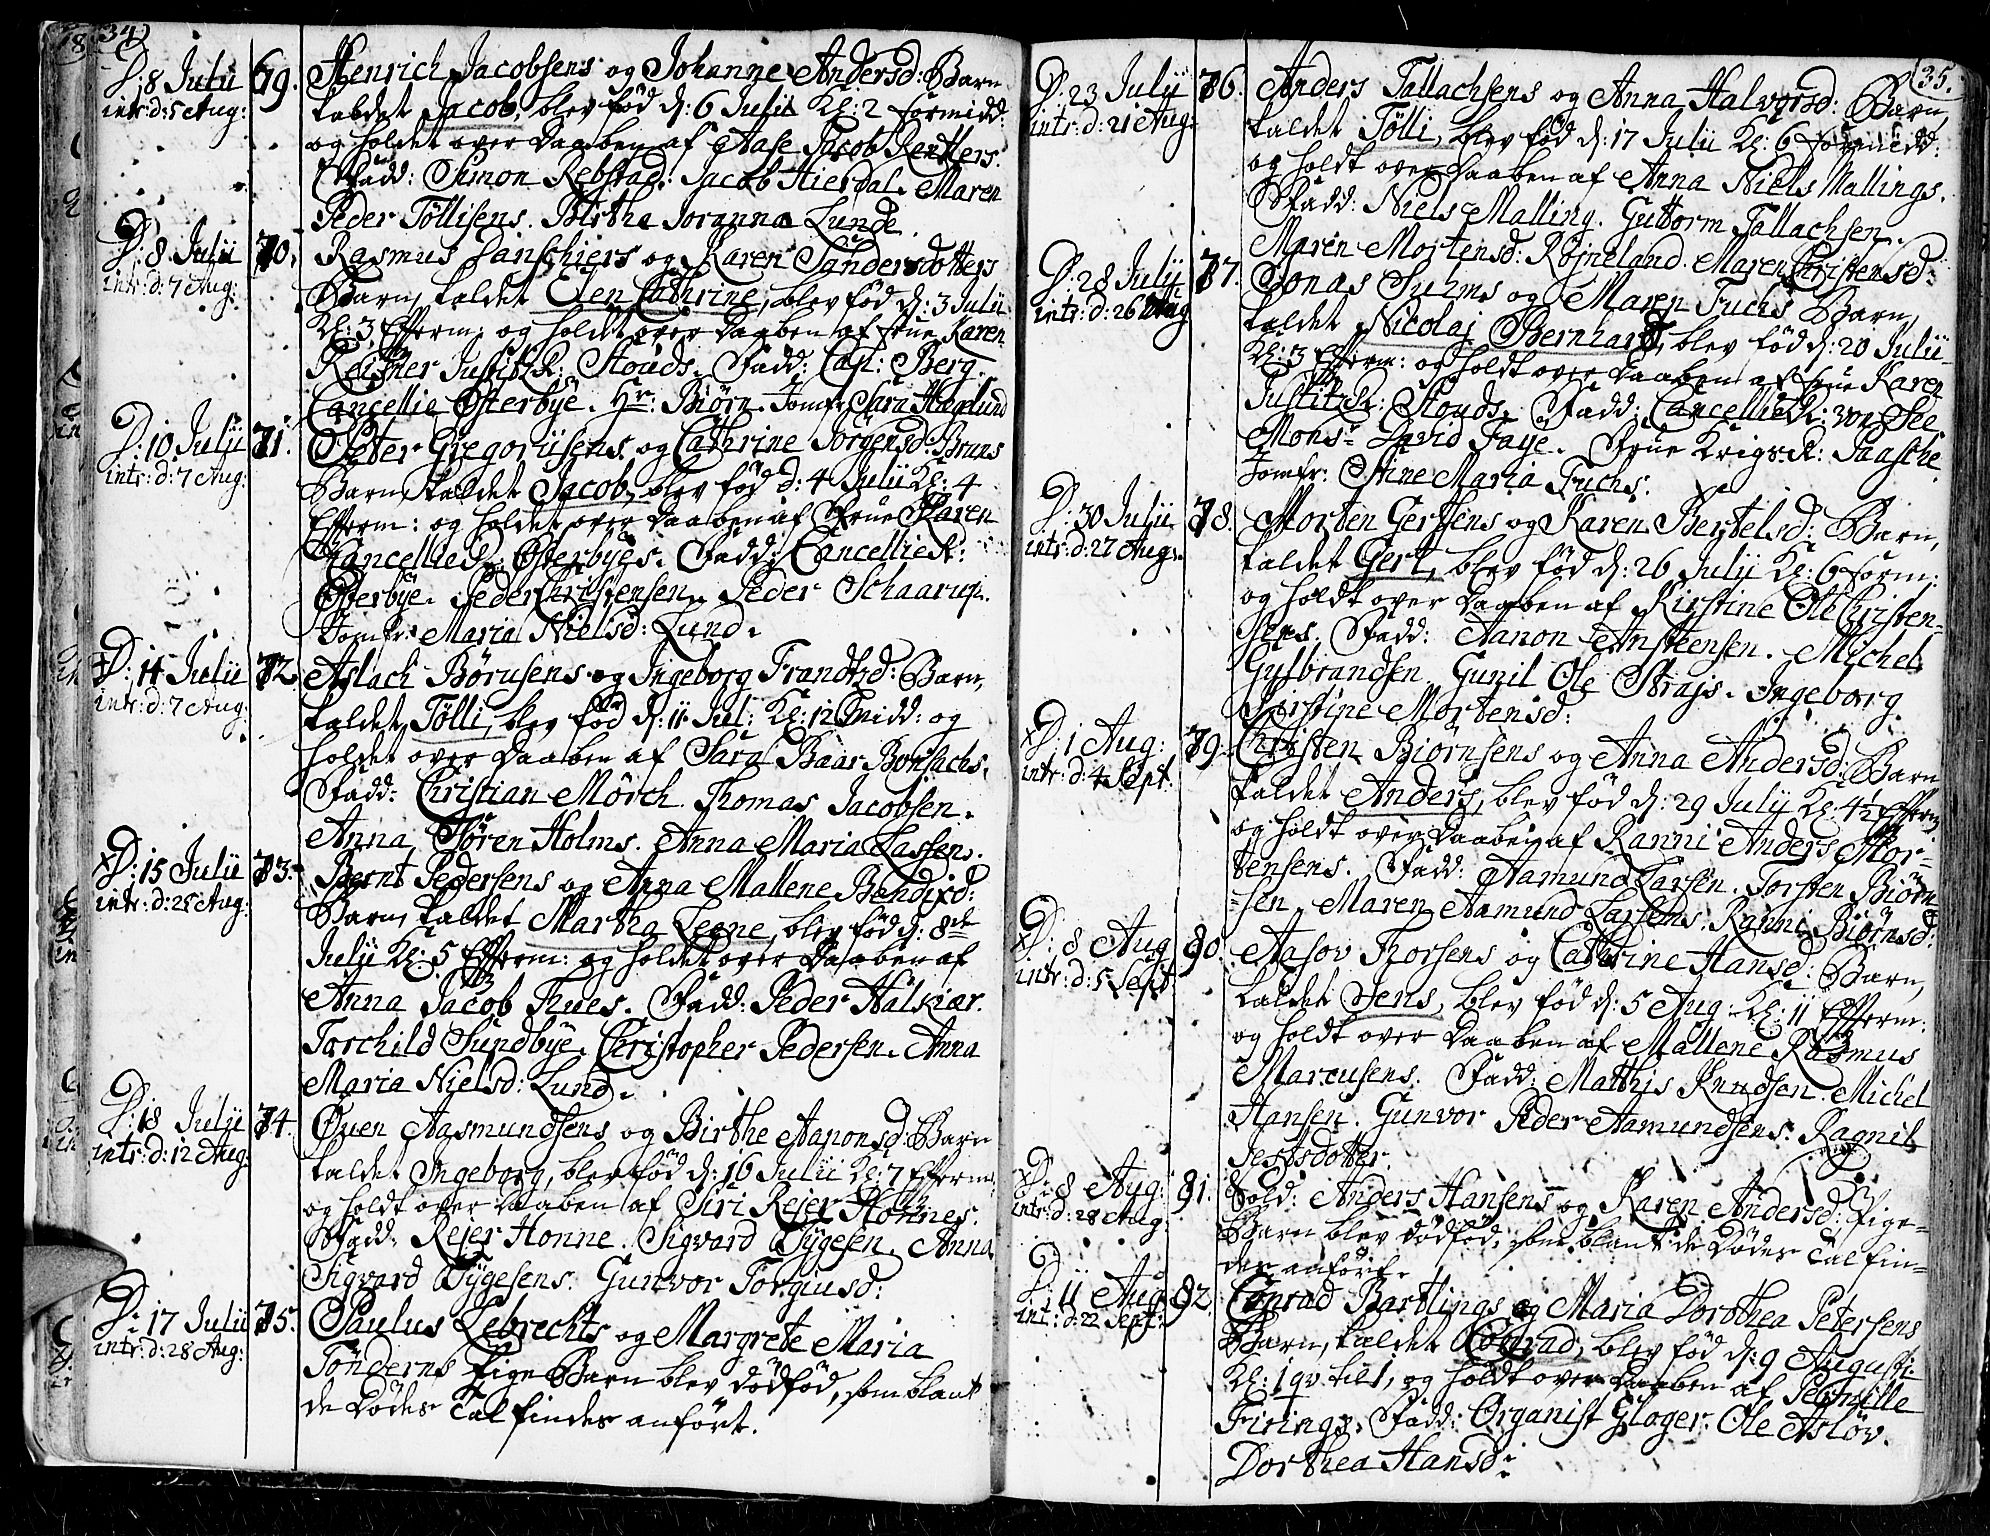 34)
D: 8 Julii 69. Henrich Jacobsens og Johanne Andersd: Barn
intr: d: 5 Aug: kaldet Jacob, blev född d: 6 Julii Kl: 2 formidd:
og holdet over Daaben af Aase Jacob Rentlers.
Fadd: Simon Rebstad. Jacob Hierdal. Maren
Peder Töllisens. Birthe Joranna Lunde.
D: 8 Julii 70. Rasmus Danschiers og Karen Sandersdotters
intr: d: 7 Aug: Barn, kaldet Elen Cathrine, blev föd d: 3 Julii
Kl: 3 Efferm: og holdet over Daaben af Frue Karen
Justitz R: Stouds. Fadd: Capt: Berg.
Cancellie Osterbye. Hr: Biörn. Jomfr: Sara Hoglund
D: 10 Julii 71. Peter Gregoriisens og Cathrine Jörgensd: Bruns
intr: d: 7 Aug: Barn, kaldet Jacob, blev föd d: 4 Julii Kl: 4
Efferm: og holdet over Daaben af Frue Karen
Cancellie R: Osterbyes. Fadd: Cancellie R:
Osterbye. Peder Christensen. Peder Schaarup.
Jomfr: Maria Nielsd: Lund.
D: 11 Julii 72. Aslach Börusens og Ingeborg Frandtzd: Barn,
intr: d: 7 Aug: kaldet Tölli, blev föd d: 11 Jul: Kl: 12 Midd: og
holdet over Daaben af Sara Baar Bonsachs.
Fadd: Christian Mörch. Thomas Jacobsen.
Anna Sören Holms. Anna Maria Lassens.
D: 15 Julii 73. Bernt Pedersens og Anna Mallene Bendixd:
intr: d: 25 Aug: Barn, kaldet Martha Leene, blev föd d: 8de
Julii Kl: 5 Efferm: og holdet over Daaben af
Anna Jacob Thues. Fadd: Peder Halkiær.
Torchild Sundbye. Christopher Pedersen. Anna
Maria Nielsd: Lund.
D: 18 Julii 74. Ouen Aasmundsens og Birthe Aanonsd: Barn
intr: d: 12 Aug: kaldet Ingeborg, blev föd d: 16 Julii Kl: 7 Efferm:
og holdt over Daaben af Siri Rejer Honnes.
Fadd: Rejer Honne. Sigvard Tygesen. Anna
Sigvard Tygesens. Gunvor Torgiusd:
D: 17 Julii 75. Paulus Lebrechts og Margrete Maria
intr: d: 28 Aug: Tönderns Pige Barn blev dödföd, som blant
de Dödes Tal findes anfört.
35.
D: 23 Julii 76. Anders Tallachsens og Anna Halvorsd: Barn,
intr: d: 21 Aug: kaldet Tölli, blev föd d: 17 Julii Kl: 6 formidd:
og holdt over Daaben af Anna Niels Mallings.
Fadd: Niels Malling. Guttorm Tallachsen.
Maren Mortensd: Röjneland. Maren Christensd:
D: 28 Julii 77. Jonas Suhms og Maren Fuchs Barn,
intr: d: 26 Aug kaldet Nicolaj Bernhard, blev föd d: 20 Julii
Kl: 3 Efferm: og holdt over Daaben af Frue Karen
Justitz R: Stouds. Fadd: Cancellie R: von See
Monsr David Faye. Frue Krigs R: Paasche.
Jomfr: Stine Maria Fuchs.
D: 30 Julii 78. Morten Gertsens og Karen Bertelsd: Barn,
intr: d: 27 Aug: kaldet Gert, blev föd d: 26 Julij Kl: 6 form:
og holdt over Daaben af Kirstine Ole Christen-
sens. Fadd: Aanon Ansteensen. Michel
Gulbrandsen. Gunil Ole Strajs. Ingeborg
Kirstine Mortensd:
D: 1 Aug: 79. Christen Biornsens og Anna Andersd: Barn
intr: d: 4 Sept. kaldet Anders, blev föd d: 29 July Kl: 4½ Efferm
og holdt over Daaben af Ranni Anders Mor-
tensens. Fadd: Aamund Larsen. Torsten Biörn
-sen. Maren Aamund Larsens. Ranni Biörnsd:
D: 8 Aug 80. Aasov Thorsens og Cathrine Hansd: Barn,
intr: d: 5 Sept kaldet Jens, blev föd d: 5 Aug: Kl: 11 Efferm:
og holdt over Daaben af Mallene Rasmus
Marcusens. Fadd: Mathis Knudsen. Michel
Hansen. Gunvor Peder Aamundsens. Ragnil
Jensdotter.
D: 8 Aug: 81. Sold: Anders Hansens og Karen Andersd: Pige-
intr: d: 28 Aug: Barn blev dödföd, som blant de Dödes Tal fin-
des anfört.
D: 11 Aug 82. Conrad Bartlings og Maria Dorothea Petersens
int: d: 22 Sept: Barn, kaldet Conrad, blev föd d: 9 Augusti
Kl: 1 qv. til 1, og holdt over Daaben af Pernille
Firings. Fadd: Organist Gloger. Ole Aslöv.
Dorthea Hansd: